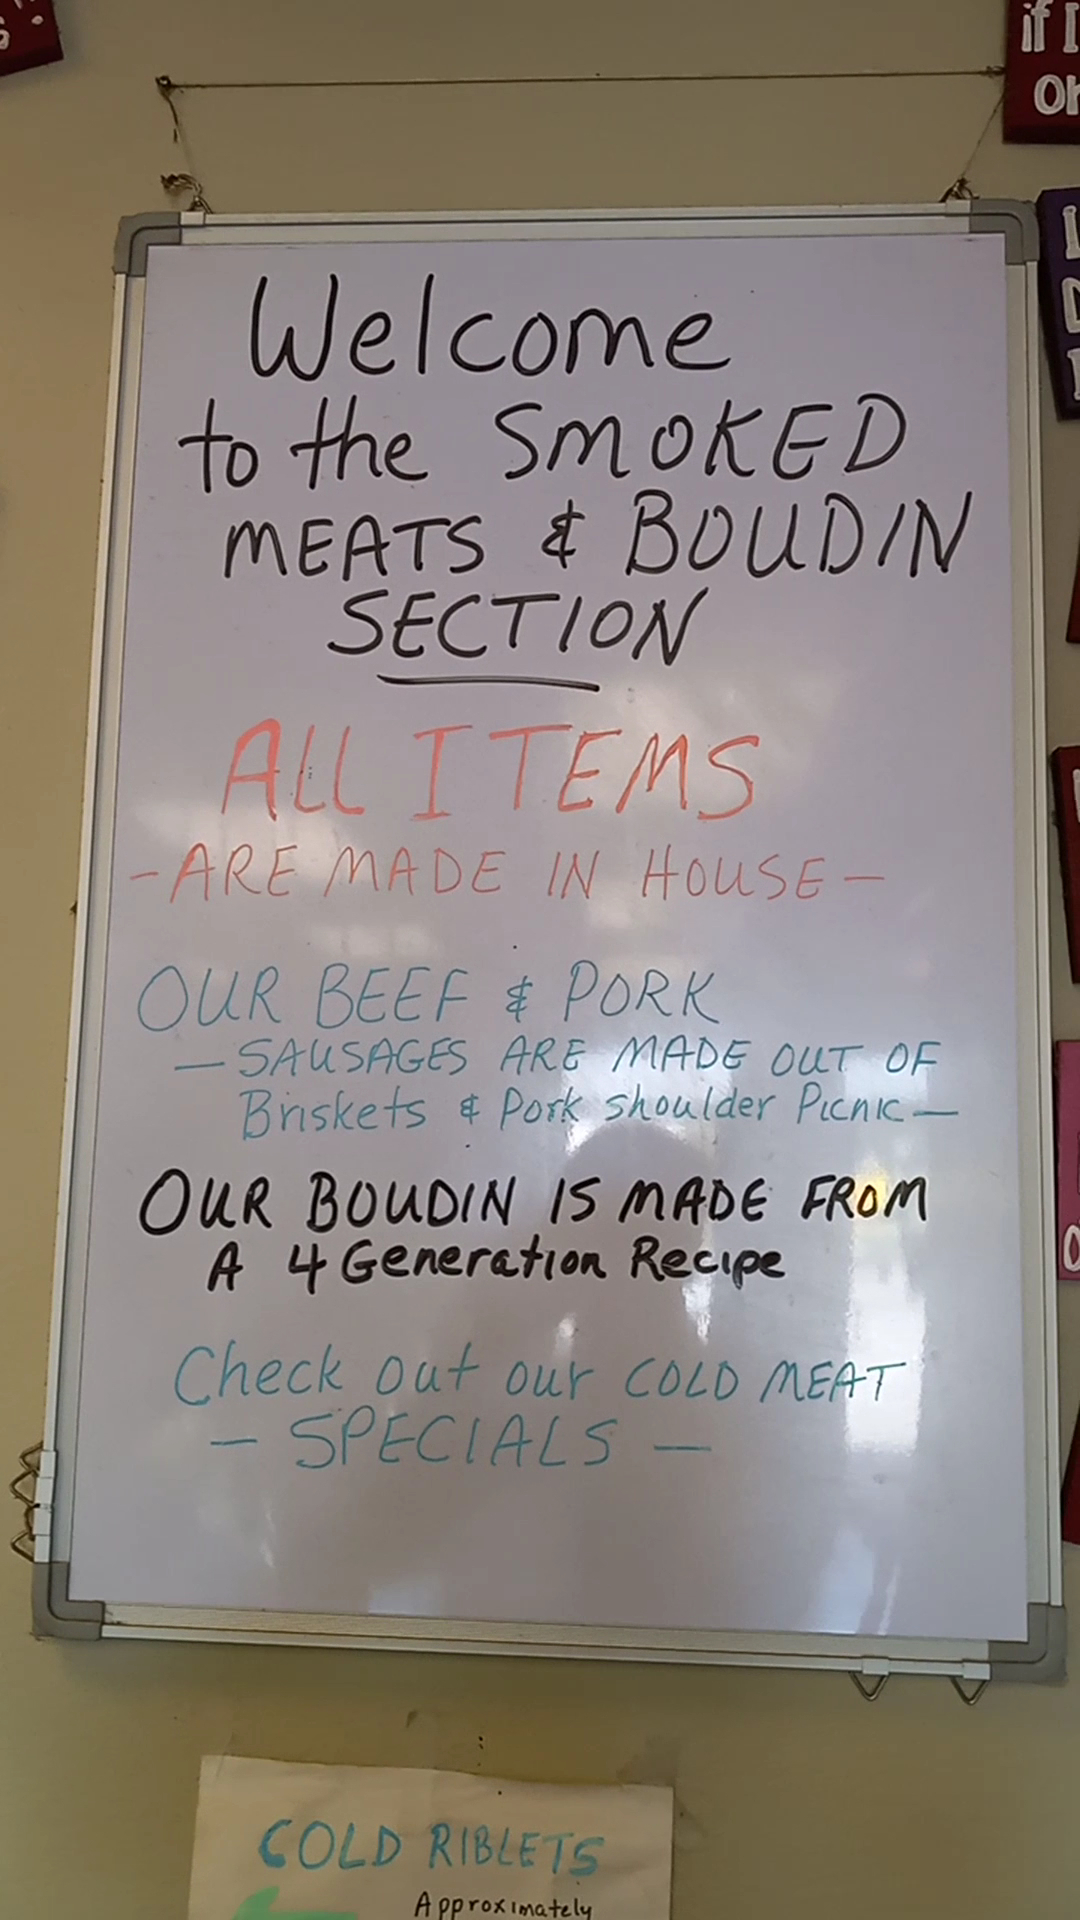 Welcome
to the SMOKED
MEATS & BOUDIN
SECTION
ALL ITEMS
-ARE MADE IN HOUSE-
OUR BEEF & PORK
- SAUSAGES ARE MADE OUT OF
Briskets & Pork shoulder Picnic -
OUR BOUDIN IS MADE FROM
A 4 Generation Recipe
Check out our COLD MEAT
- SPECIALS -
COLD RIBLETS
Approximately
if I